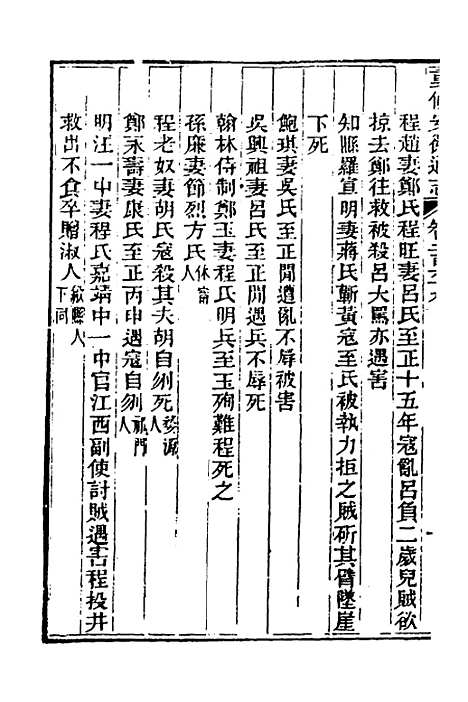 重修安徽通志 卷二百六十九
程趙妻鄭氏程旺妻呂氏至正十五年寇亂呂負二歲兒賊欲
掠去鄭往救被殺呂大罵亦遇害
知縣羅宣明妻蔣氏蘄黃寇至氏被執力拒之賊斫其臂墜崖
下死
鮑琪妻吳氏至正閒遭亂不辱被害
吳興祖妻呂氏至正閒遇兵不辱死
翰林待制鄭玉妻程氏明兵至玉殉難程死之
孫廉妻節烈方氏休甯人
程老奴妻胡氏寇殺其夫胡自刎死婺源人
鄭永壽妻康氏至正丙申遇寇自刎祁門人
明江一中妻程氏嘉靖中一中官江西副使討賊遇害程投井
救出不食卒贈淑人歙縣人下同